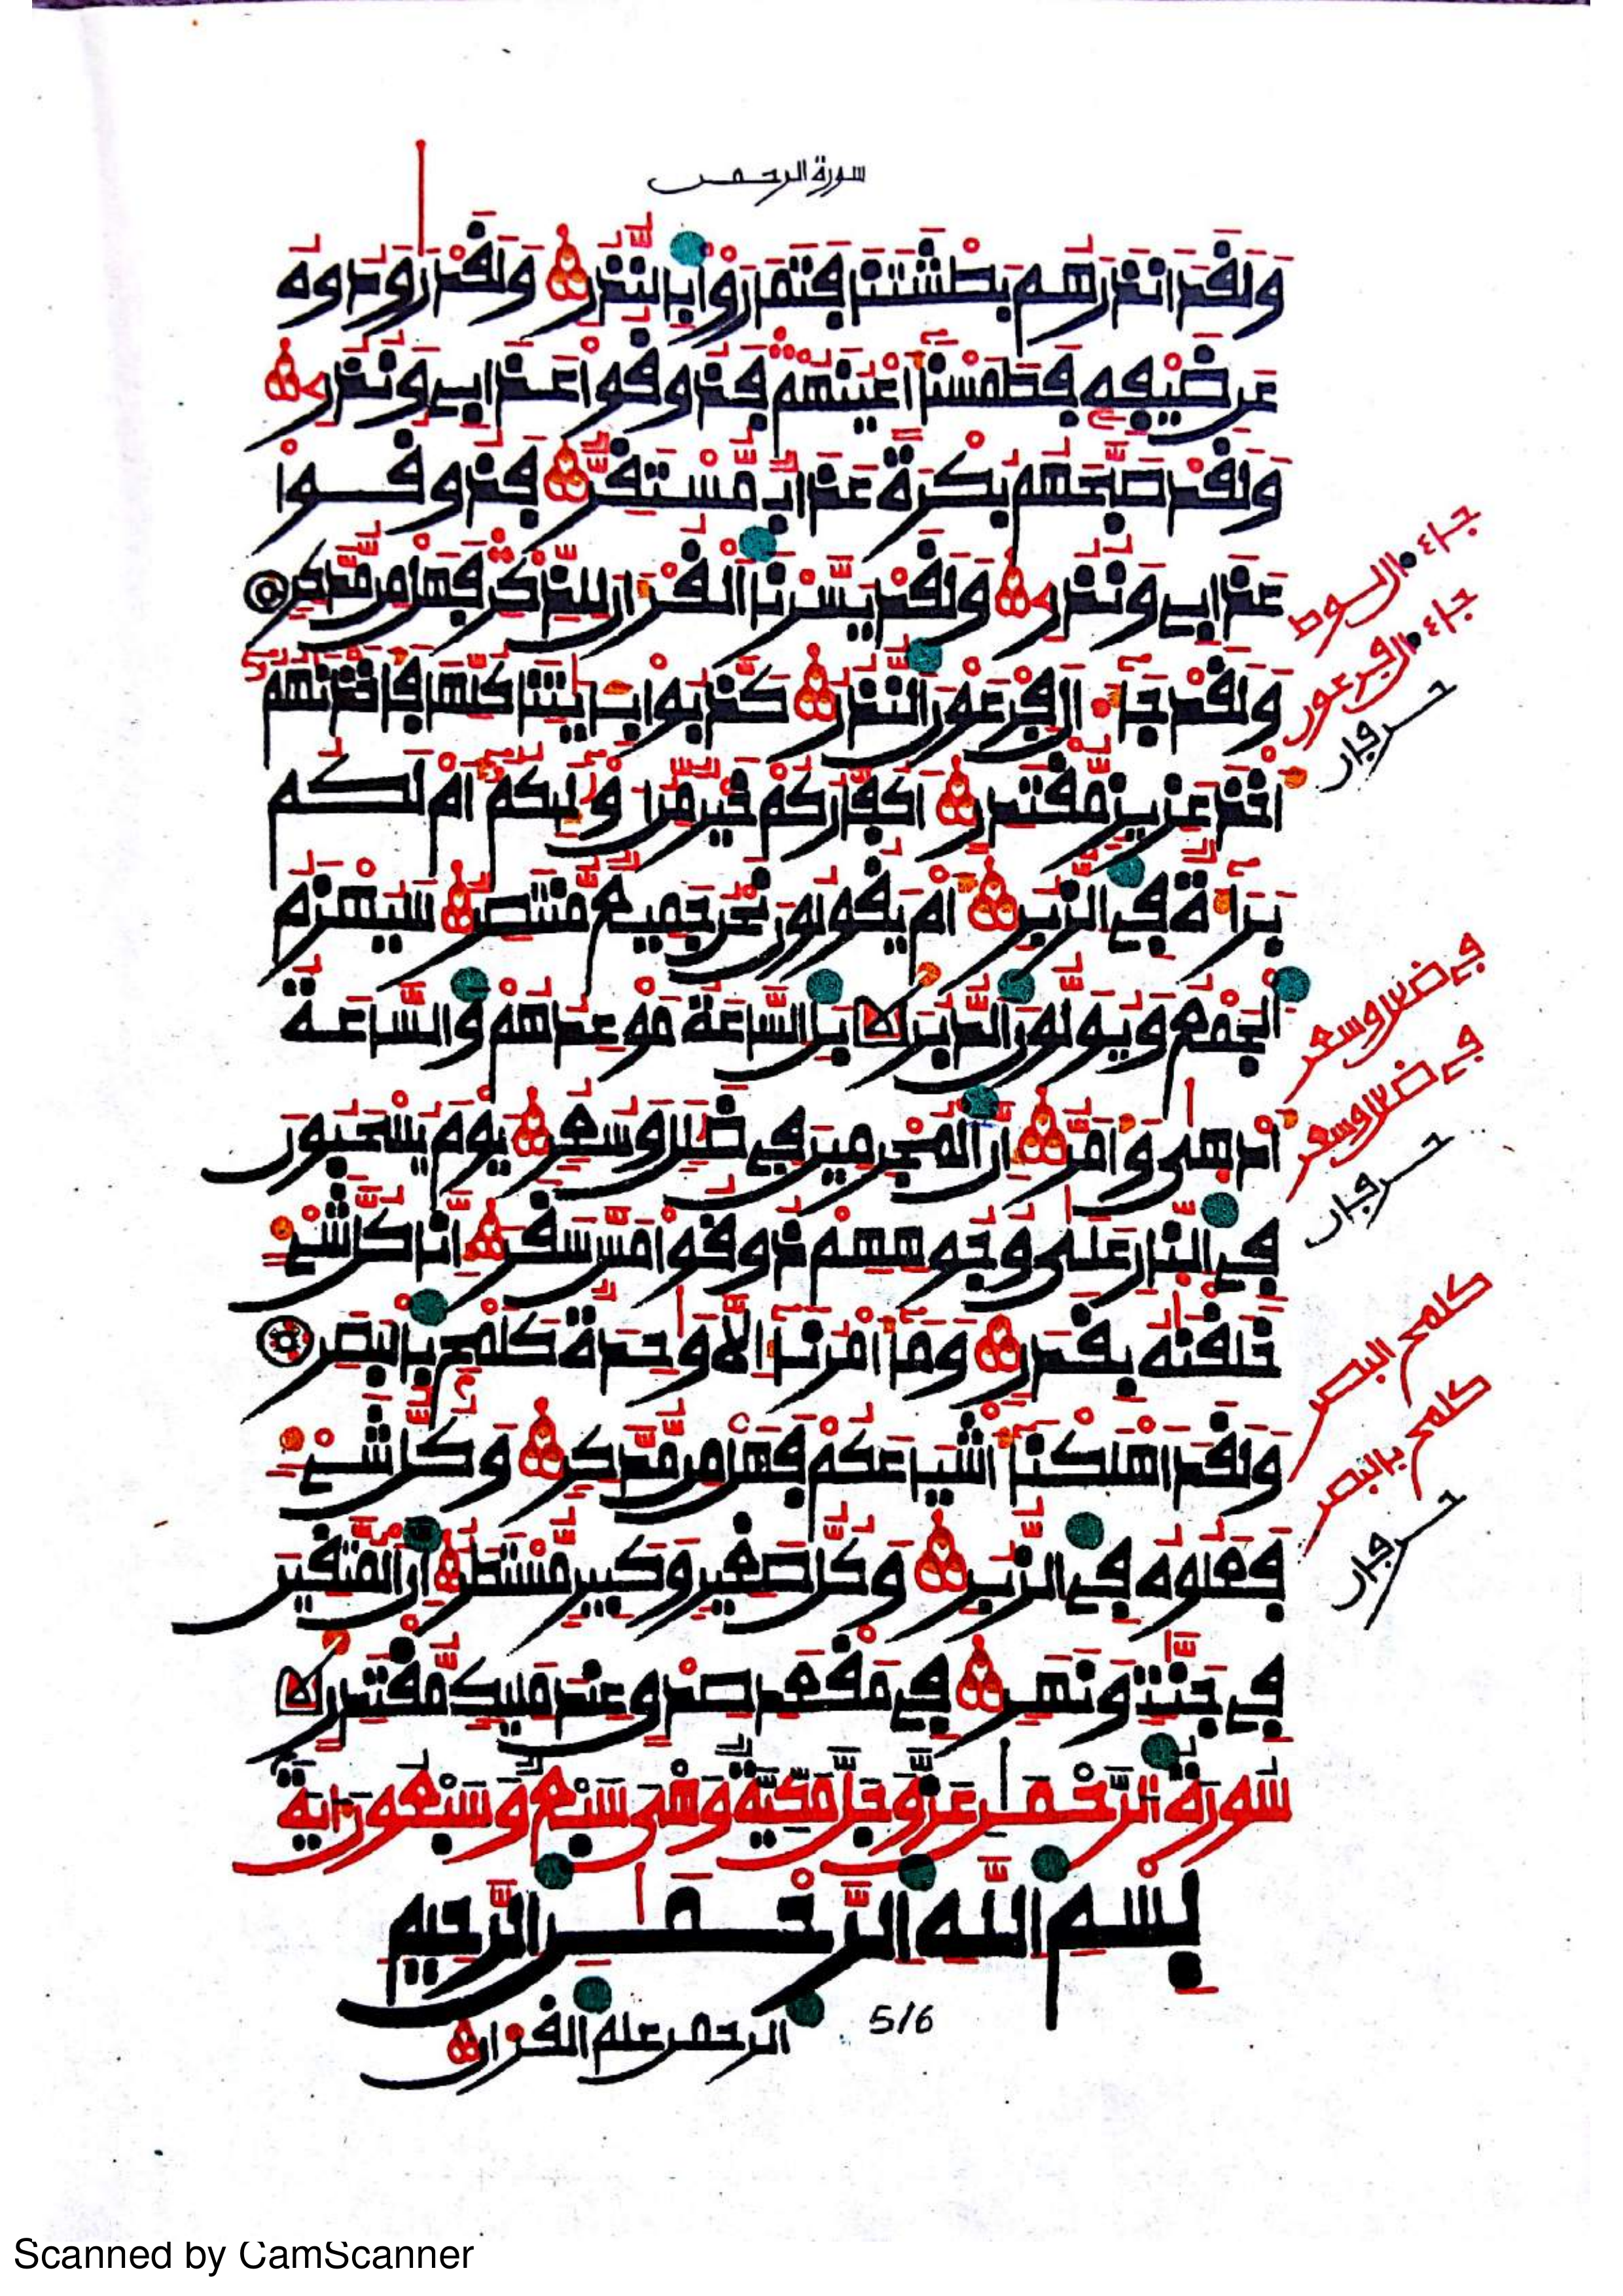 سورة الرحمن
وَلَقَدَ اَنذَرَهُم بَطْشَتَنَا فَتَمَارَوْاْ بِالنُّذُرِ وَلَقَدْ رَٰوَدُوهُ
عَن ضَيْفِهِ فَطَمَسْنَآ أَعْيُنَهُمْ فَذُوقُواْ عَذَابِي وَنُذُرِ
وَلَقَدْ صَبَّحَهُم بُكْرَةً عَذَابٌ مُّسْتَقِرٌّ فَذُوقُواْ
عَذَابِي وَنُذُرِ وَلَقَدْ يَسَّرْنَا اَلْقُرْءَانَ لِلذِّكْرِ فَهَلْ مِن مُّدَّكِرٍ
وَلَقَدْ جَآءَ الَ فِرْعَوْنَ النُّذُرُ كَذَّبُواْ بِـَٔايَٰتِنَا كُلِّهَا فَأَخَذْنَٰهُمُۥٓ
أَخْذَ عَزِيزٍ مُّقْتَدِرٍ أَكُفَّارُكُمْ خَيْرٌ مِّنُ اوْلَٰٓئِكُمُۥٓ أَمْ لَكُم
بَرَآءَةٌ فِي الزُّبُرِ أَمْ يَقُولُونَ نَحْنُ جَمِيعٌ مُّنتَصِرٌ سَيُهْزَمُ
اُلْجَمْعُ وَيُوَلُّونَ الدُّبُرَ بَلِ السَّاعَةُ مَوْعِدُهُمْ وَالسَّاعَةُ
أَدْهَىٰ وَأَمَرُّ إِنَّ اَلْمُجْرِمِينَ فِي ضَلَٰلٍ وَسُعُرٍ يَوْمَ يُسْحَبُونَ
فِي النَّارِ عَلَىٰ وُجُوهِهِمْ ذُوقُواْ مَسَّ سَقَرَ إِنَّا كُلَّ شَيْءٍ
خَلَقْنَٰهُ بِقَدَرٍ وَمَآ أَمْرُنَآ إِلَّا وَٰحِدَةٌ كَلَمْحٍۭ بِالْبَصَرِ
وَلَقَدَ اَهْلَكْنَآ أَشْيَاعَكُمْ فَهَلْ مِن مُّدَّكِرٍ وَكُلُّ شَيْءٍ
فَعَلُوهُ فِي الزُّبُرِ وَكُلُّ صَغِيرٍ وَكَبِيرٍ مُّسْتَطَرٌ إِنَّ اَلْمُتَّقِينَ
فِي جَنَّٰتٍ وَنَهَرٍ فِي مَقْعَدِ صِدْقٍ عِندَ مَلِيكٍ مُّقْتَدِرٍ
سُورَةُ اُلرَّحْمَٰنِ عَزَّ وَجَلَّ مَكِّيَّةٌ وَهْيَ سَبْعٌ وَسَبْعُونَ ءَايَةً
بِسْمِ اِللَّهِ اِلرَّحْمَٰنِ اِلرَّحِيمِ
الرحمن علم القرءان
516
جاء ال لوط
جاء ال فرعون
حرفان
في ضلل وسعر
في ضلل وسعر
حرفان
كلمح البصر
كلمح بالبصر
حرفان
Scanned by CamScanner